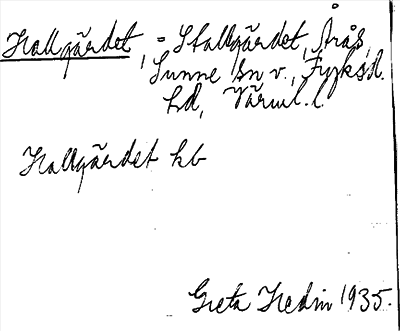 Hallgärdet, = Stallgärdet, Årås,
Sunne sn v., Fryksd.
hd, Värml. l
Hallgärdet kb
Greta Hedin 1935.